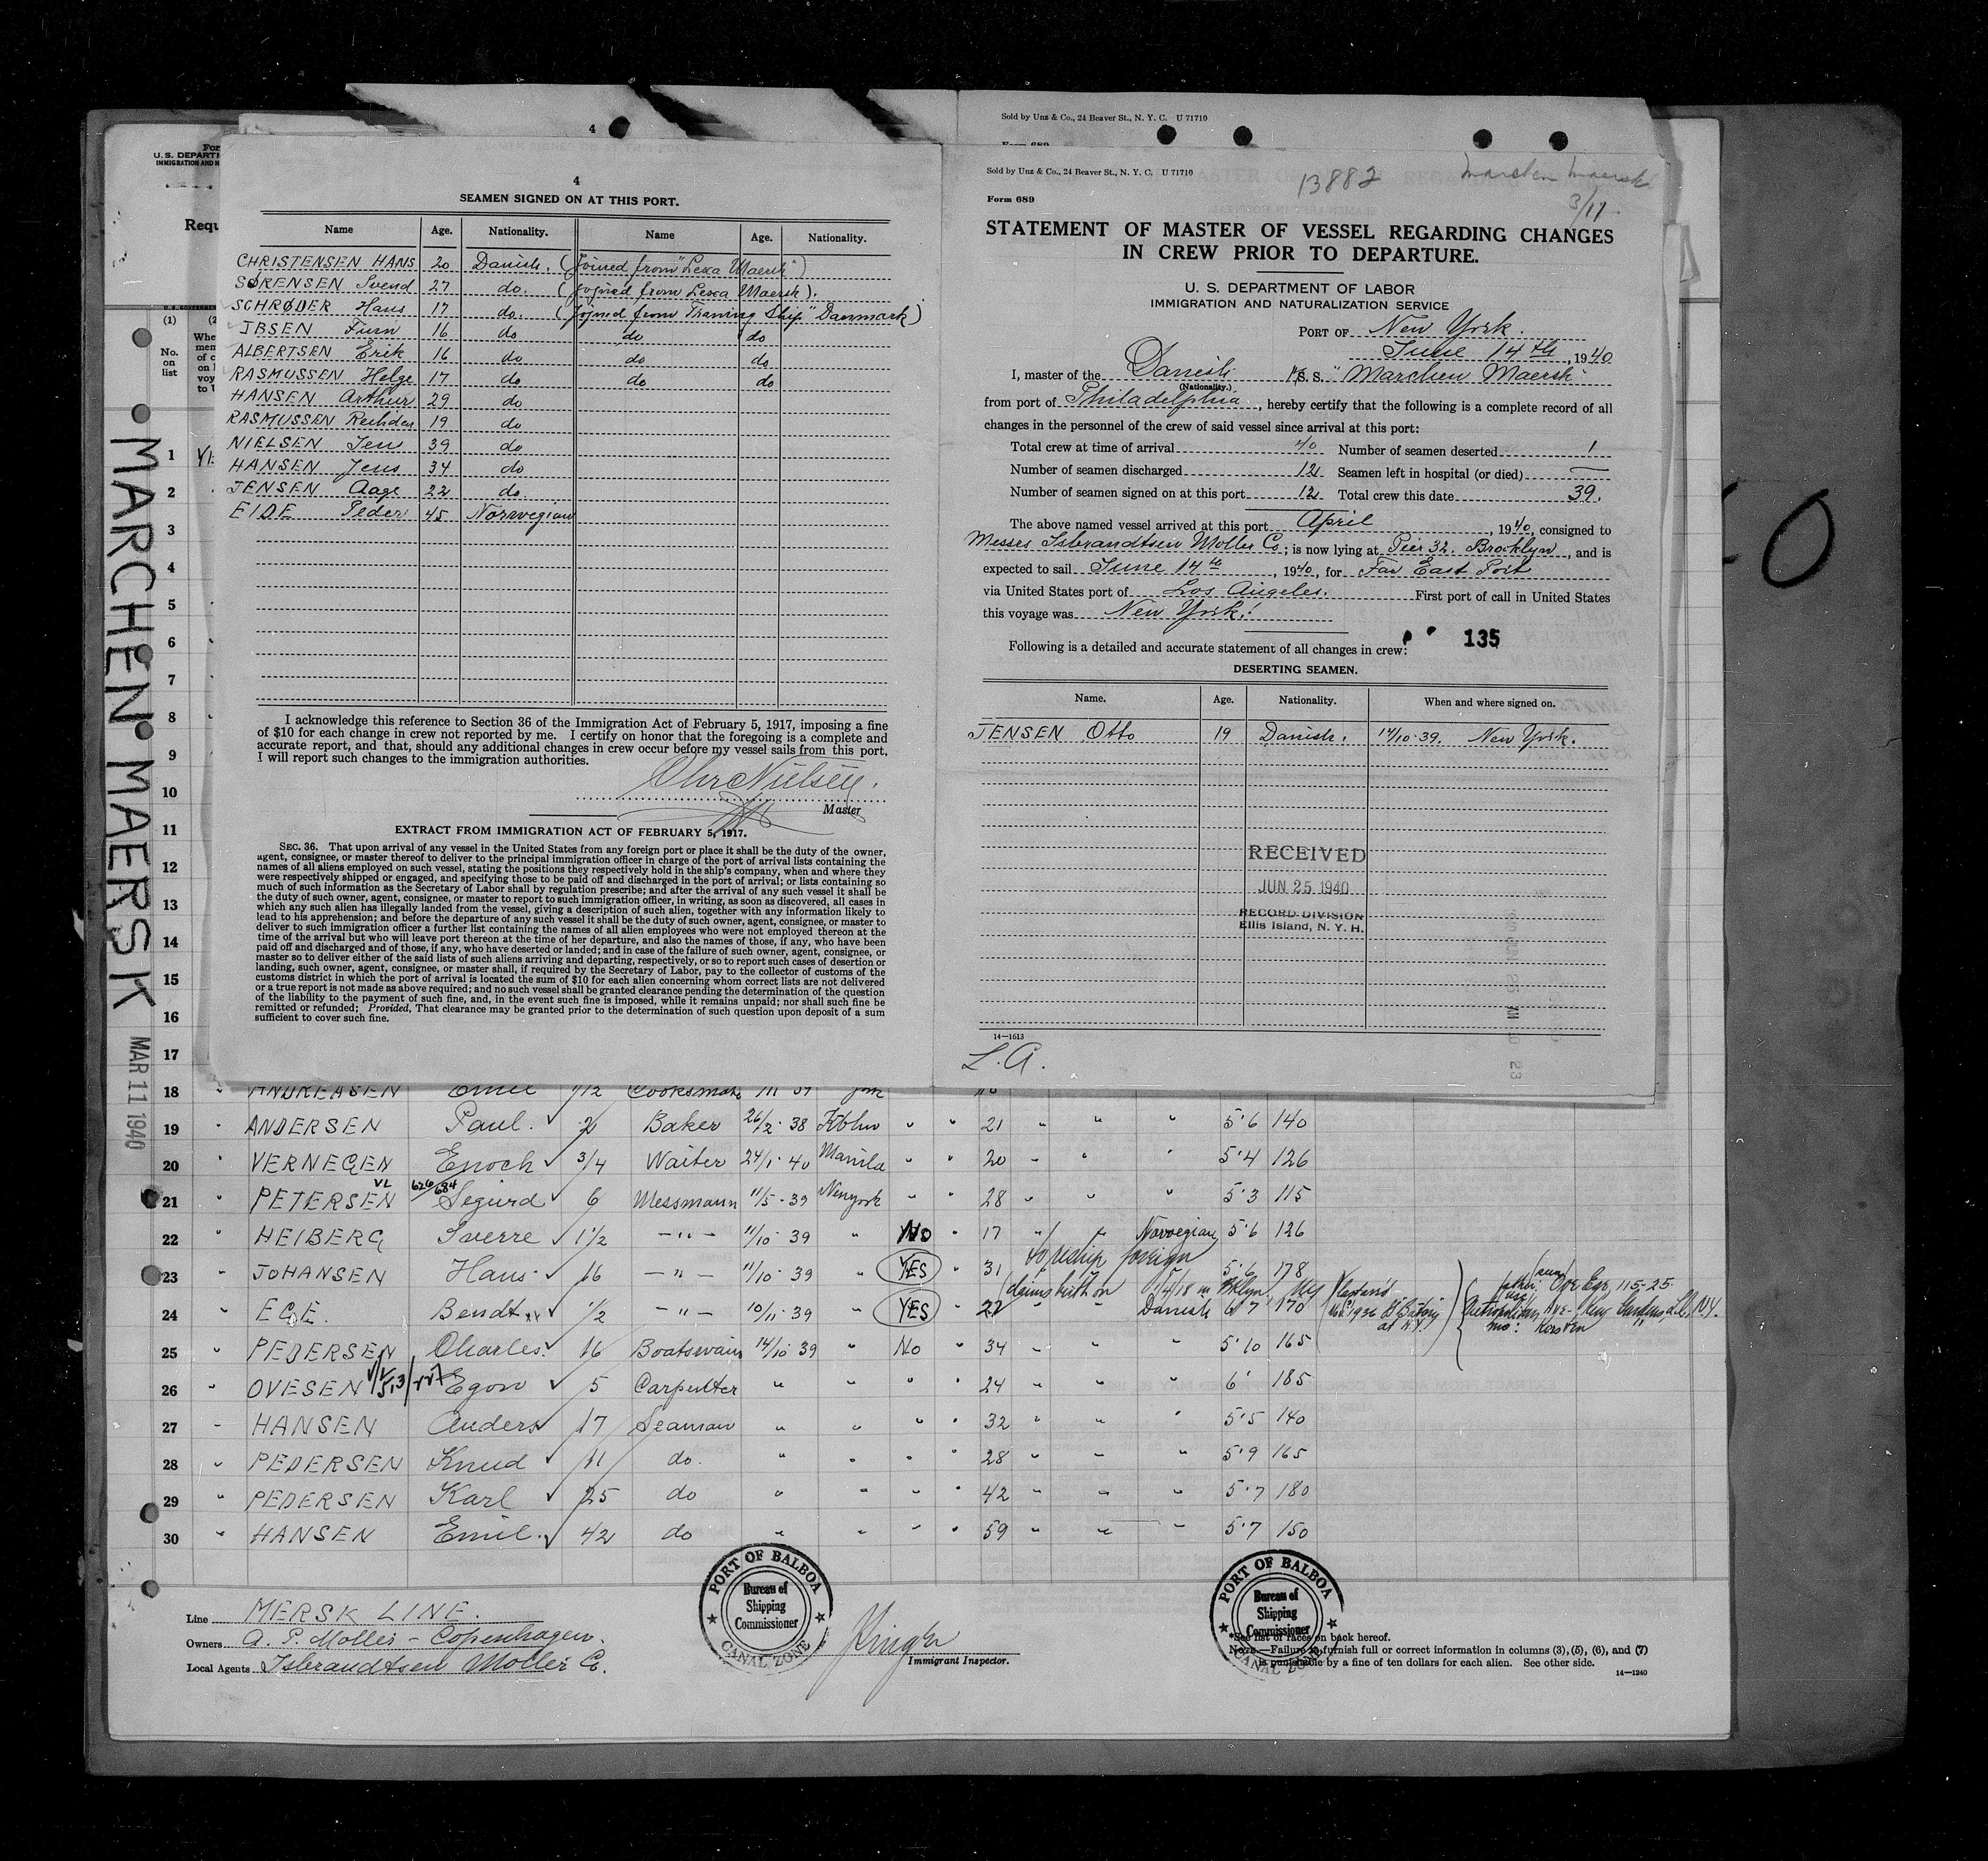 4
4
SEAMEN SIGNED ON AT THIS PORT.
Name Age. Nationality. Name Age. Nationality.
CHRISTENSEN HANS 20 Danish. (Joined from "Lexa Maersk")
SØRENSEN Svend 27 do. (joined from Lexa Maersk).
SCHRØDER Hans 17 do. (joined from Training Ship "Danmark")
IBSEN Finn 16 do do do
ALBERTSEN Erik 16 do do do
RASMUSSEN Helge 17 do do do
HANSEN Arthur 29 do
RASMUSSEN 19 do
NIELSEN Jens 39 do
HANSEN Jens 34 do
JENSEN Aage 22 do
EIDE Peder 45 Norwegian
I acknowledge this reference to Section 36 of the Immigration Act of February 5, 1917, imposing a fine
of $10 for each change in crew not reported by me. I certify on honor that the foregoing is a complete and
accurate report, and that, should any additional changes in crew occur before my vessel sails from this port,
I will report such changes to the immigration authorities.
Chr Nielsen.
Master
EXTRACT FROM IMMIGRATION ACT OF FEBRUARY 5, 1917.
SEC. 36. That upon arrival of any vessel in the United States from any foreign port or place it shall be the duty of the owner,
agent, consignee, or master thereof to deliver to the principal immigration officer in charge of the port of arrival lists containing the
names of all aliens employed on such vessel, stating the positions they respectively hold in the ship's company, when and where they
were respectively shipped or engaged, and specifying those to be paid off and discharged in the port of arrival; or lists containing so
much of such information as the Secretary of Labor shall by regulation prescribe; and after the arrival of any such vessel it shall be
the duty of such owner, agent, consignee, or master to report to such immigration officer, in writing, as soon as discovered, all cases in
which any such alien has illegally landed from the vessel, giving a description of such alien, together with any information likely to
lead to his apprehension; and before the departure of any such vessel it shall be the duty of such owner, agent, consignee, or master to
deliver to such immigration officer a further list containing the names of all alien employees who were not employed thereon at the
time of the arrival but who will leave port thereon at the time of her departure, and also the names of those, if any, who have been
paid off and discharged and of those, if any, who have deserted or landed; and in case of the failure of such owner, agent, consignee, or
master so to deliver either of the said lists of such aliens arriving and departing, respectively, or so to report such cases of desertion or
landing, such owner, agent, consignee, or master shall, if required by the Secretary of Labor, pay to the collector of customs of the
customs district in which the port of arrival is located the sum of $10 for each alien concerning whom correct lists are not delivered
or a true report is not made as above required; and no such vessel shall be granted clearance pending the determination of the question
of the liability to the payment of such fine, and, in the event such fine is imposed, while it remains unpaid; nor shall such fine be
remitted or refunded; Provided, That clearance may be granted prior to the determination of such question upon deposit of a sum
sufficient to cover such fine.
Sold by Unz & Co., 24 Beaver St., N. Y. C. U 71710
Form 689
Sold by Unz & Co., 24 Beaver St., N. Y. C. U 71710
13882
Marchen Maersk
3/11
Form 689
STATEMENT OF MASTER OF VESSEL REGARDING CHANGES
IN CREW PRIOR TO DEPARTURE.
U. S. DEPARTMENT OF LABOR
IMMIGRATION AND NATURALIZATION SERVICE
PORT OF New York.
June 14th, 1940
I, master of the Danish M/S. S. "Marchen Maersk"
(Nationality.)
from port of Philadelphia, hereby certify that the following is a complete record of all
changes in the personnel of the crew of said vessel since arrival at this port:
Total crew at time of arrival 40 Number of seamen deserted 1
Number of seamen discharged 12 Seamen left in hospital (or died) —
Number of seamen signed on at this port 12 Total crew this date 39.
The above named vessel arrived at this port April, 1940, consigned to
Messrs Isbrandtsen Moller Co; is now lying at Pier 32. Brooklyn, and is
expected to sail June 14th, 1940, for Far East Port
via United States port of Los Angeles. First port of call in United States
this voyage was New York!
135
Following is a detailed and accurate statement of all changes in crew:
DESERTING SEAMEN.
Name. Age. Nationality. When and where signed on.
JENSEN Otto 19 Danish. 14/10-39. New York.
RECEIVED
JUN 25 1940
RECORD DIVISION
Ellis Island, N. Y. H.
14—1613
L.A.
U.S. DEPART
IMMIGRATION AND N
Requ
(1)
No.
on
list
MARCHEN MAERSK MAR 11 1940
1
2
3
4
5
6
7
8
9
10
11
12
13
14
15
16
17
18 " ANDREASEN Emil 1/2 Cooksmate York
19 " ANDERSEN Paul. 2 Baker 26/2-38 Kbhn " " 21 " " " 5'6 140
20 " VERNEGEN Enoch 3/4 Waiter 24/1-40 Manila " " 20 " " " 5'4 126
21 " PETERSEN VL 626/684 Sigurd 6 Messmann 11/5-39 Newyork " " 28 " " " 5'3 115
22 " HEIBERG Sverre 1 1/2 -"- 11/10-39 " No " 17 " " Norwegian 5'6 126
to reship foreign
23 " JOHANSEN Hans 16 -"- 11/10-39 " YES " 31 5'6 178
claims birth on
24 " EGE. Bendt 1/2 -"- 10/11-39 " YES " 22 " " Danish 6'7 170
father: Ove Ege, 115-25
Metropolitan Ave- Kew Gardens, L.I., N.Y.
25 " PEDERSEN Charles. 16 Boatswain 14/10-39 " No " 34 " " " 5'10 165
26 " OVESEN Egon 5 Carpenter " " " " 24 " " " 6' 185
27 " HANSEN Anders 17 Seaman " " " " 32 " " " 5'5 140
28 " PEDERSEN Knud 11 do. " " " " 28 " " " 5'9 165
29 " PEDERSEN Karl 25 do " " " " 42 " " " 5'7 180
30 " HANSEN Emil. 42 do " " " " 59 " " " 5'7 150
Line MERSK LINE.
Owners A. P. Moller - Copenhagen.
Local Agents Isbrandtsen Moller Co.
PORT OF BALBOA
Bureau of
Shipping
Commissioner
CANAL ZONE
Immigrant Inspector.
PORT OF BALBOA
Bureau of
Shipping
Commissioner
CANAL ZONE
*See list of races on back hereof.
NOTE.—Failure to furnish full or correct information in columns (3), (5), (6), and (7)
is punishable by a fine of ten dollars for each alien. See other side.
14—1240